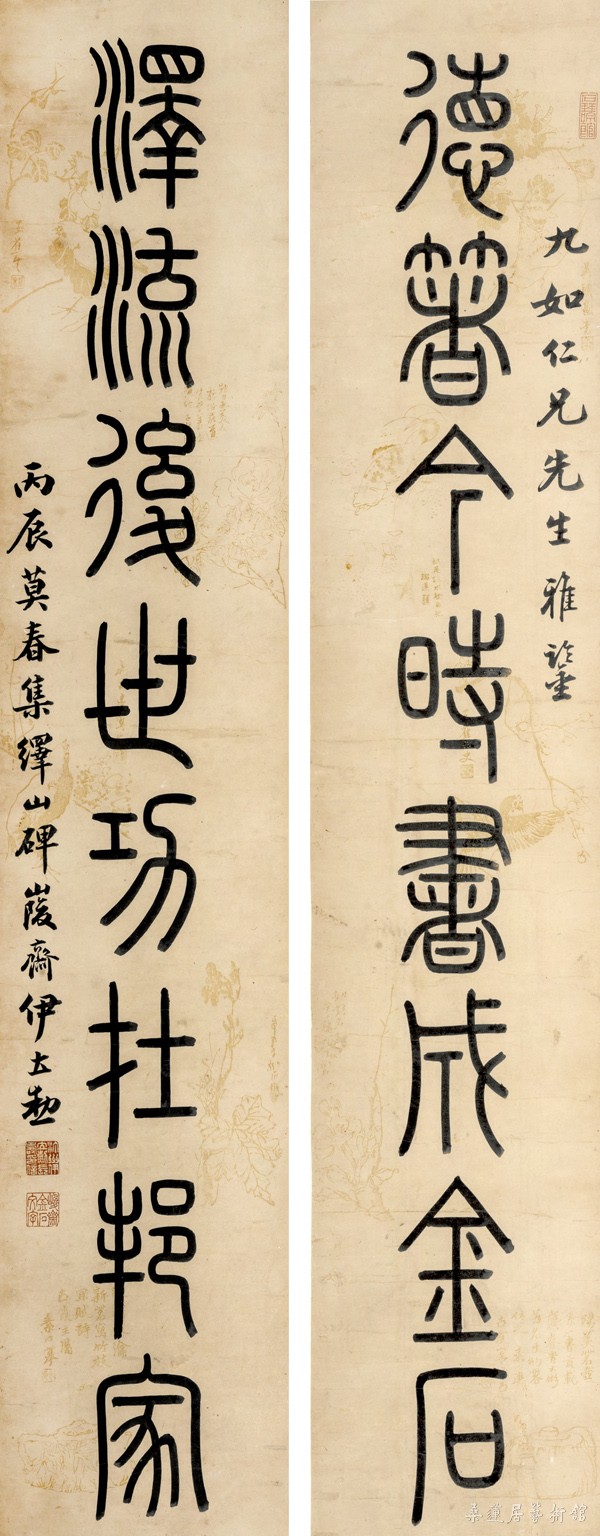 九如仁兄先生雅鉴
德箸今時書成金石
澤流後世功在邦家
丙辰莫春集繹山碑崖齋伊立勳
桑蓮居藝術館